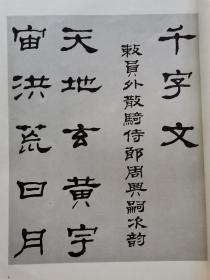 千字文
敕員外散騎侍郎周興嗣次韵
天地玄黃宇
宙洪荒日月